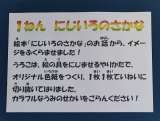 1ねん にじいろのさかな
絵本「にじいろのさかな」のお話から、イメー
ジをふくらませました。
うろこは、絵の具をにじませるやりかたで、
オリジナル色紙をつくり、1枚1枚ていねいに
切り抜いてはりました。
カラフルなうみのせかいをごらんください!